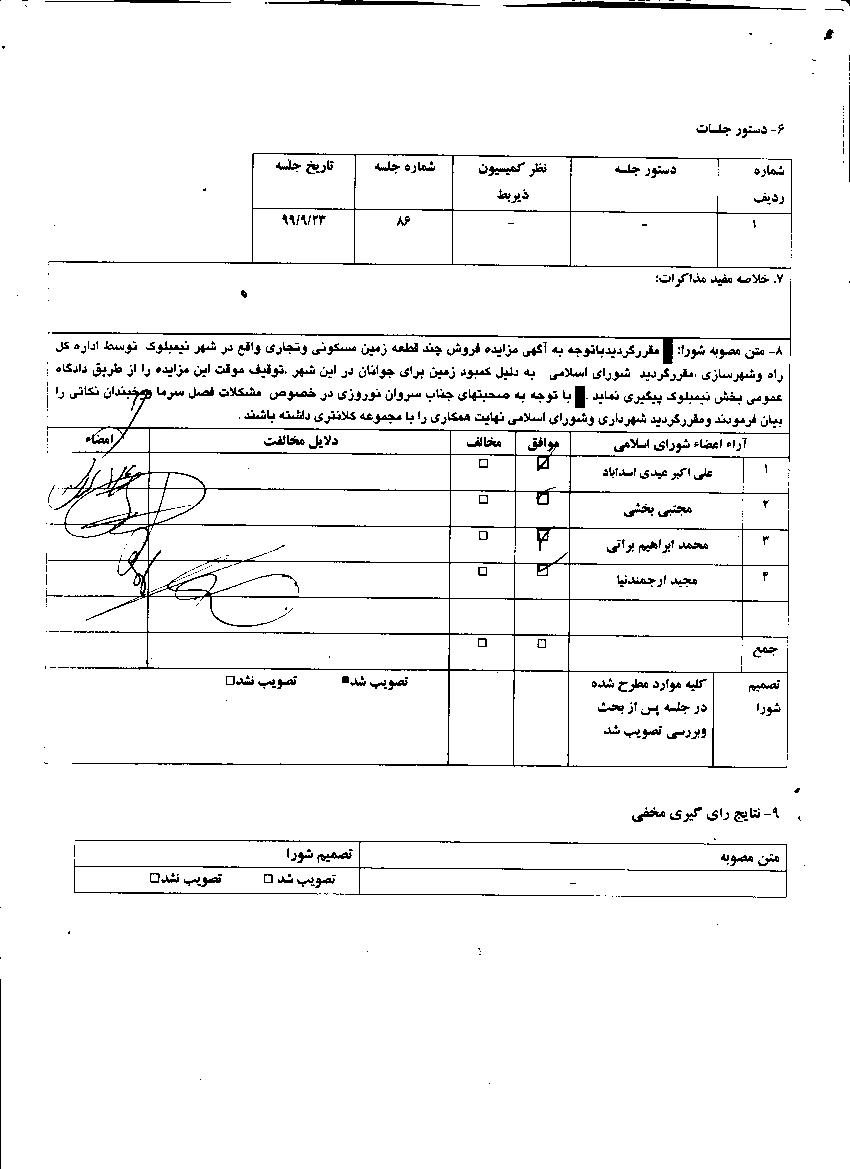 ۶- دستور جلسات
شماره ردیف	دستور جلسه	نظر کمیسیون ذیربط	شماره جلسه	تاریخ جلسه
۱	-	-	۸۶	۹۹/۹/۲۳
۷. خلاصه مفید مذاکرات:
۸- متن مصوبه شورا: مقررگردیدباتوجه به آگهی مزایده فروش چند قطعه زمین مسکونی وتجاری واقع در شهر نیمبلوک توسط اداره کل
راه وشهرسازی ،مقررگردید شورای اسلامی به دلیل کمبود زمین برای جوانان در این شهر ،توقیف موقت این مزایده را از طریق دادگاه
عمومی بخش نیمبلوک پیگیری نماید . با توجه به صحبتهای جناب سروان نوروزی در خصوص مشکلات فصل سرما یخبندان نکاتی را
بیان فرمودند ومقررگردید شهرداری وشورای اسلامی نهایت همکاری را با مجموعه کلانتری داشته باشند .
آراء اعضاء شورای اسلامی	موافق	مخالف	دلایل مخالفت	امضاء
۱	علی اکبر عیدی اسدآباد	☑	☐
۲	مجتبی بخشی	☑	☐
۳	محمد ابراهیم براتی	☑	☐
۴	مجید ارجمندنیا	☑	☐
جمع	☐	☐
تصمیم شورا	کلیه موارد مطرح شده
در جلسه پس از بحث
وبررسی تصویب شد	تصویب شد■	تصویب نشد☐
۹- نتایج رای گیری مخفی
متن مصوبه	تصمیم شورا
-	تصویب شد ☐	تصویب نشد☐